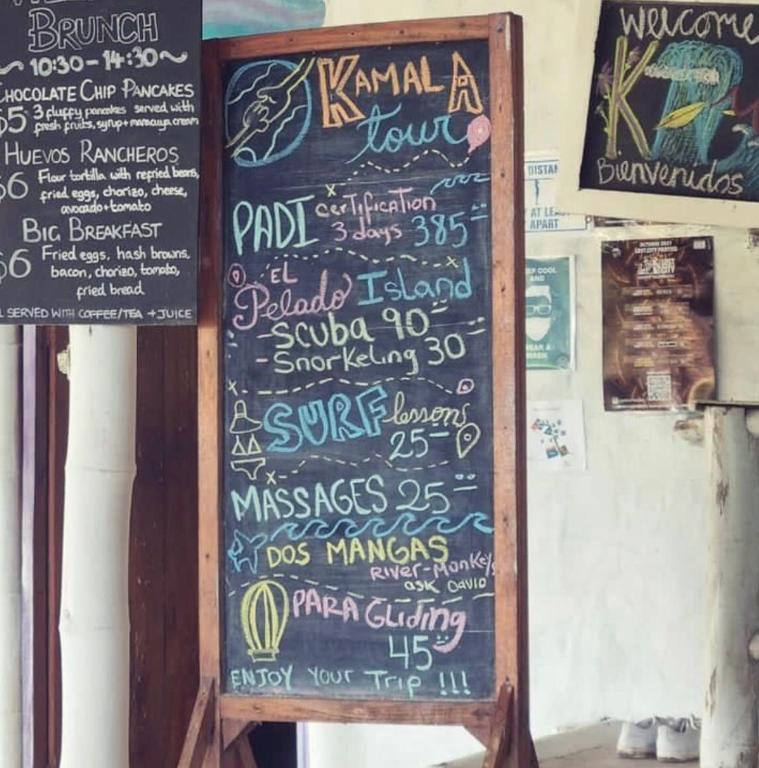 BRUNCH
10:30-14:30
CHOCOLATE CHIP PANCAKES
$5 3 fluffy pancakes served with
fresh fruits, syrup + maracuya cream
HUEVOS RANCHEROS
$6 Flour tortilla with refried beans,
fried eggs, chorizo, cheese,
avocado + tomato
BIG BREAKFAST
$6 Fried eggs, hash browns,
bacon, chorizo, tomato,
fried bread
ALL SERVED WITH COFFEE/TEA + JUICE
KAMALA
tour
PADI certification
3 days 385
EL
Pelado Island
- SCUBA 90
- Snorkeling 30
SURF lessons
25
MASSAGES 25
DOS MANGAS
River-Monkeys
ask DAVID
PARAGLiding
45
ENJOY YOUR Trip !!!
Welcome
Bienvenidos
AT LEAST
APART
OCTOBER 2021
LOST CITY PARTIES
KEEP COOL
AND
WEAR A
MASK